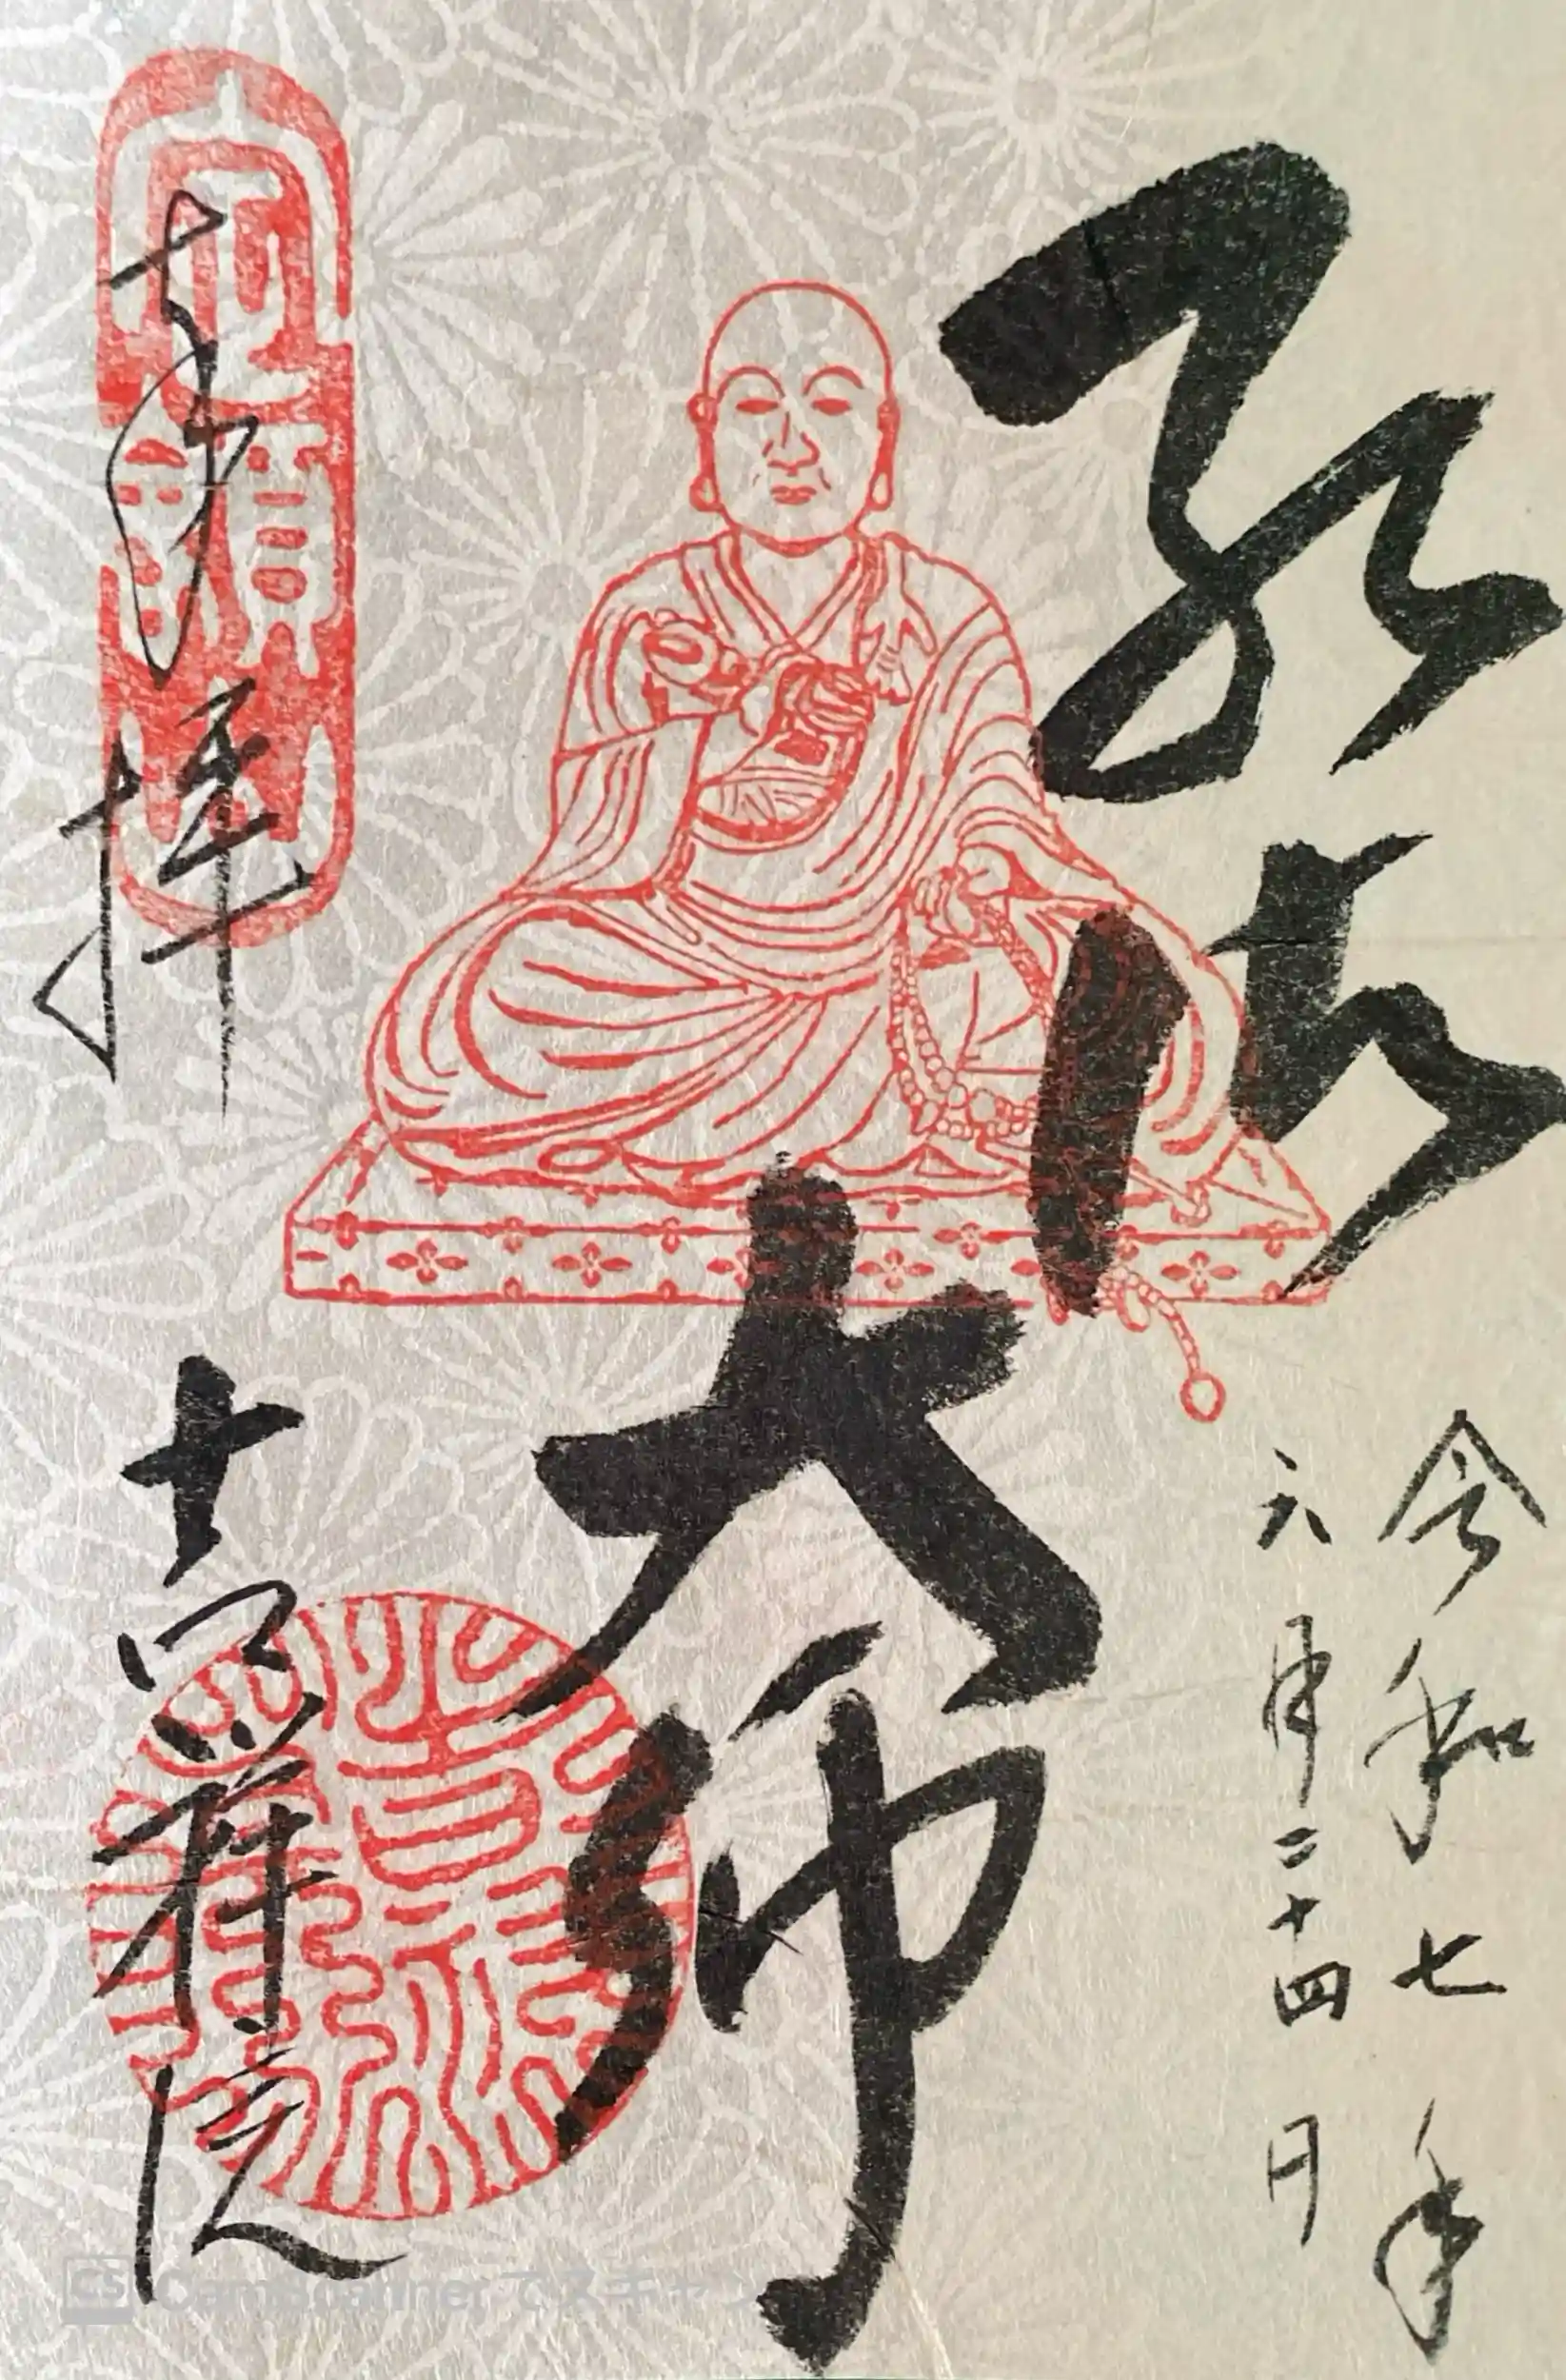 令和七年
六月二十四日
弘法大師
奉拝
吉祥院
CS CamScanner でスキャン